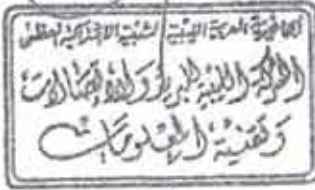 الجماهيرية العربية الليبية الشعبية الاشتراكية العظمى
الشركة الليبية للبريد والاتصالات
وتقنية المعلومات